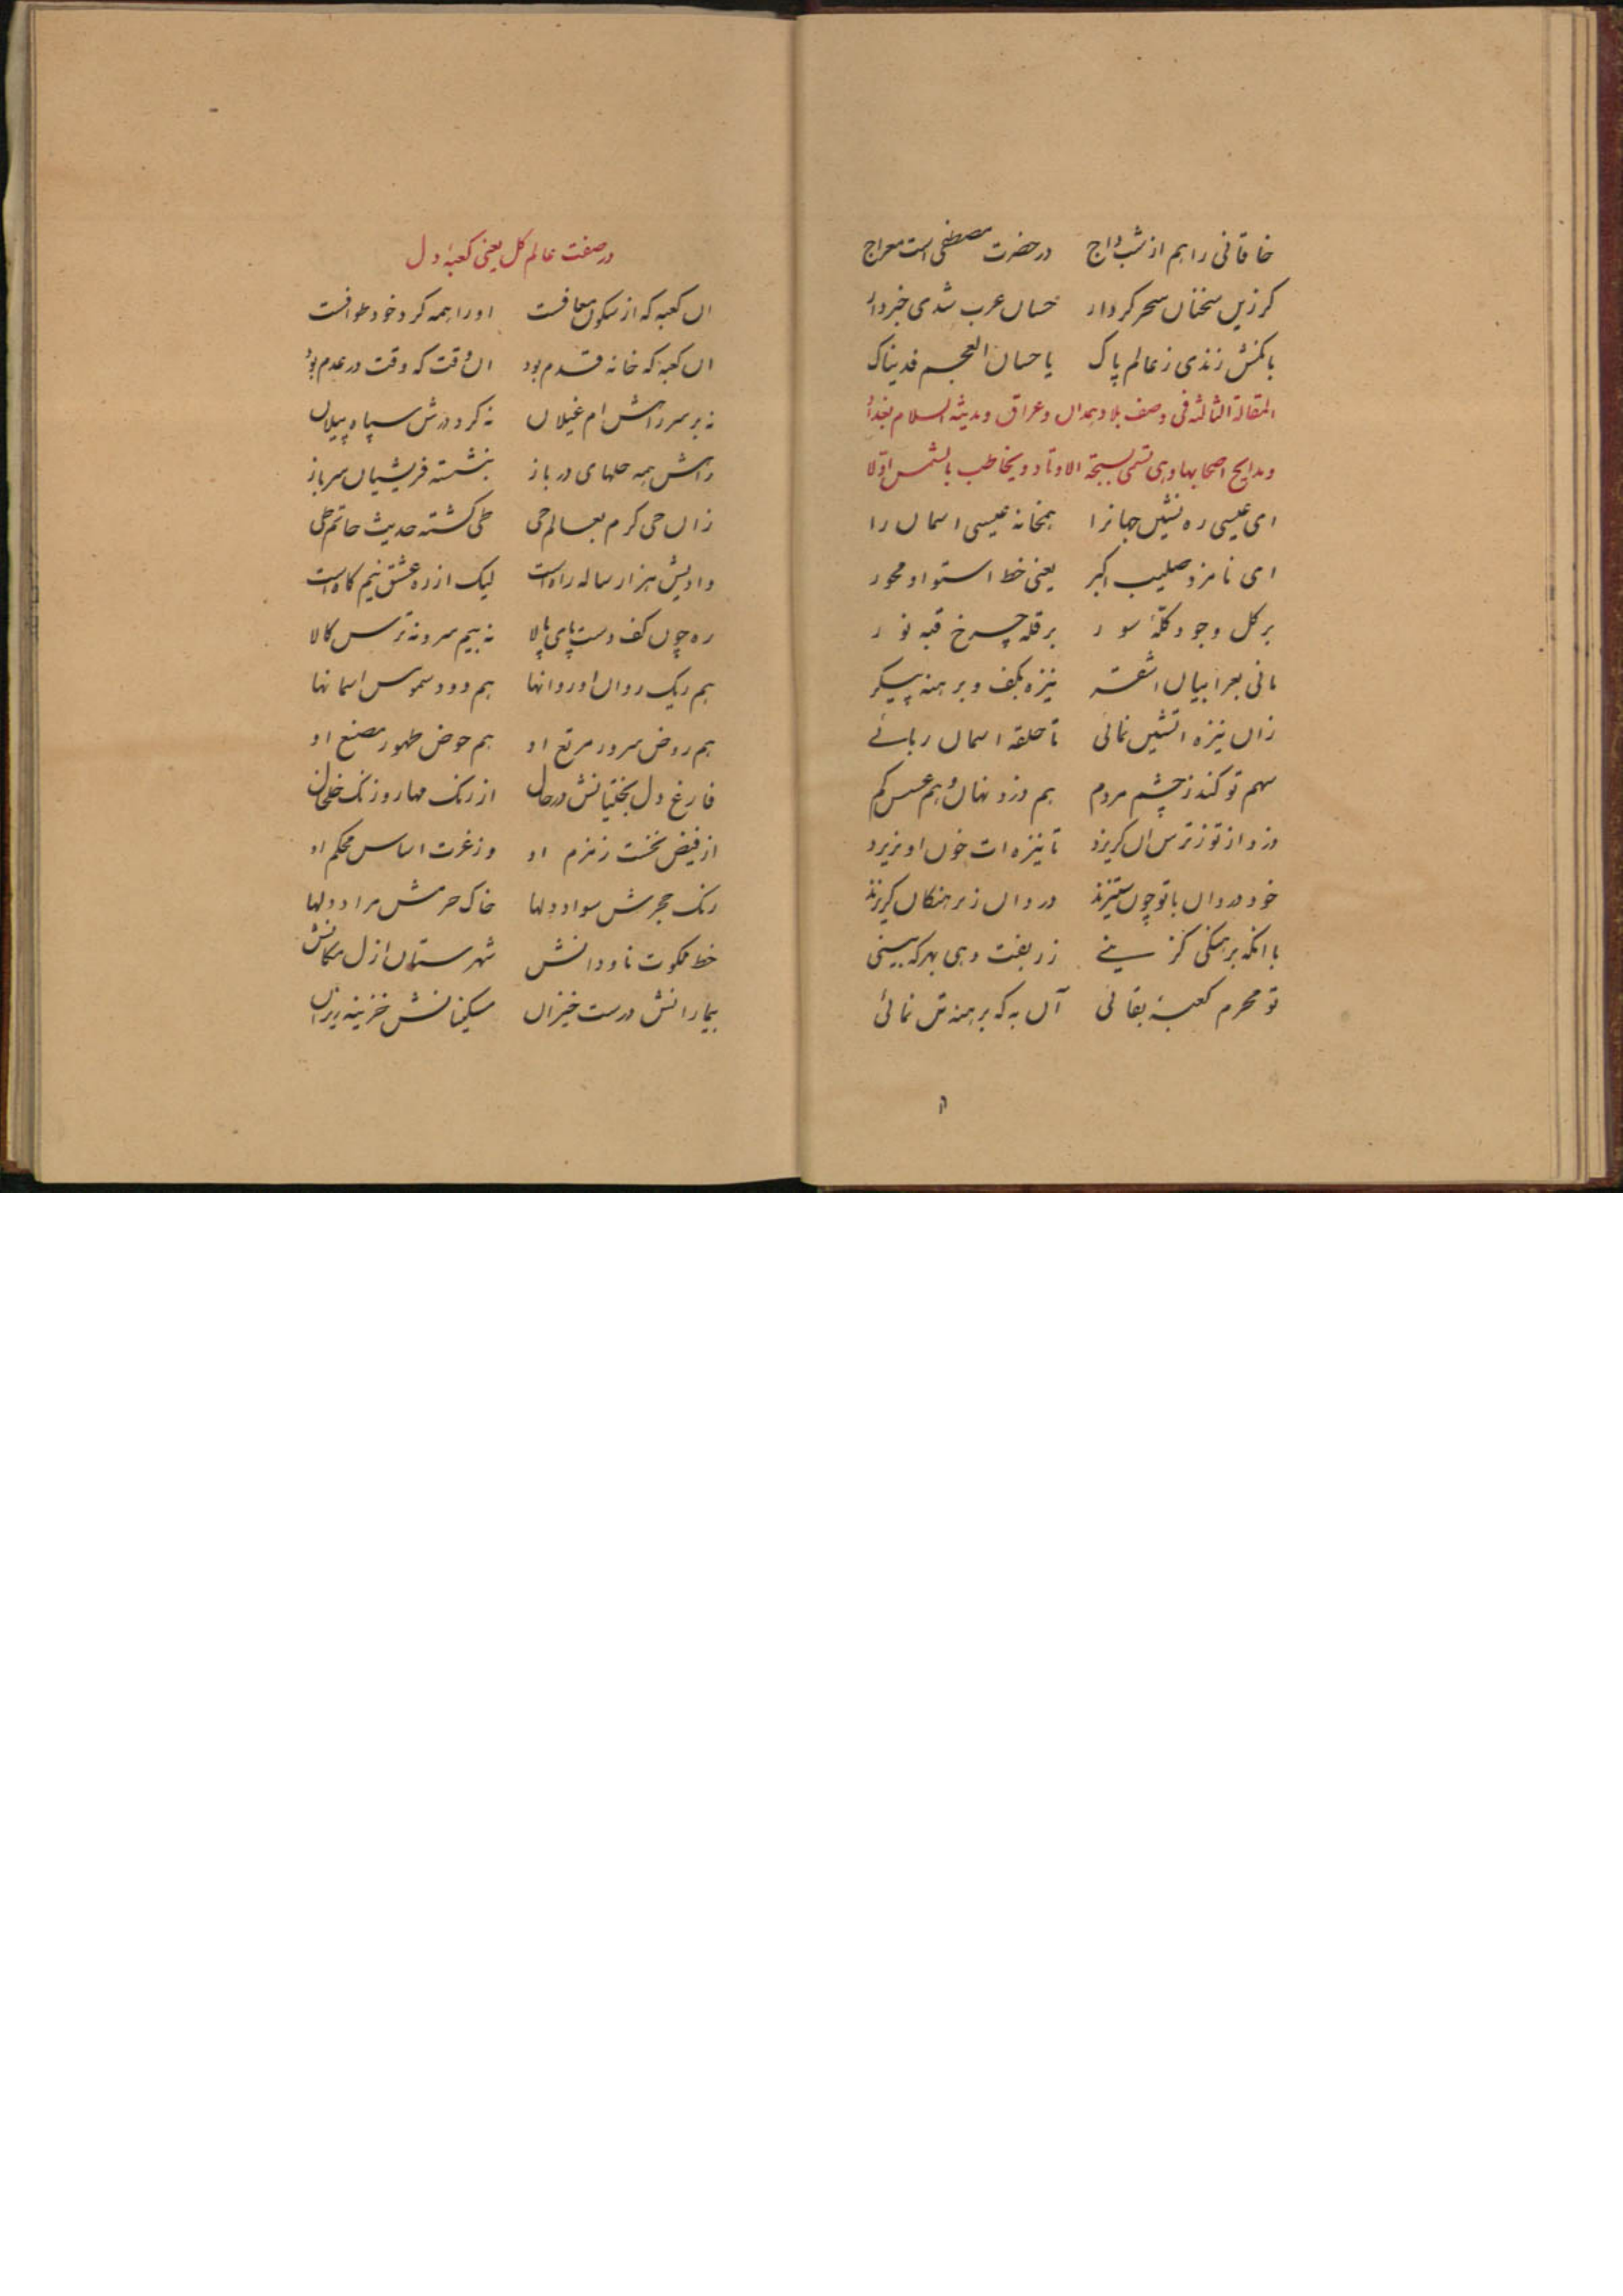 خاقانی را هم از شب داج در حضرت مصطفی است معراج
کر زین سخنان سحر کردار حسان عرب شدی خبردار
بانکش زندی ز عالم پاک یا حسان العجم فدیناک
المقالة الثالثه فی وصف بلاد همدان و عراق و مدینة السلام بغداد
و مدایح اصحابها و هی تسمی بسبحة الاوتاد و یخاطب بالشمس اولا
ای عیسی ره نشین جهانرا همخانه عیسی اسمان را
ای نامزد صلیب اکبر یعنی خط استوا و محور
بر کل وجود کلّهٔ سور بر قلهٔ چرخ قبه نور
مانی بعرابیان اشقر نیزه بکف و برهنه پیکر
زان نیزه اتشین نمائی تا حلقه اسمان ربائے
سهم تو کند ز چشم مردم هم دزد نهان و هم عسس کم
دزد از تو ز ترس ان کریزد تا نیزه ات خون او نریزد
خود دزدان با تو چون ستیزند دزدان ز برهنکان کریزند
با انکه برهنکی کزینے زربفت دهی بهر که بینی
تو محرم کعبهٔ بقائی آن به که برهنه تن نمائی
در صفت عالم کل یعنی کعبهٔ دل
ان کعبه که از سکون معافست او را همه کرد خود طوافست
ان کعبه که خانه قدم بود ان وقت که وقت در عدم بود
نه بر سر راهش ام غیلان نه کرد درش سپاه پیلان
راهش همه حلهای در باز بنشسته قریشیان سرباز
زان حی کرم بعالم حی طی کشته حدیث حاتم طی
وادیش هزار ساله راه است لیک از ره عشق نیم کاه است
ره چون کف دست پای پالا نه بیم سر و نه ترس کالا
هم ریک روان او روانها هم دود سموس اسمانها
هم روض سرور مرتع او هم حوض طهور مصنع او
فارغ دل بختیانش در حال از رنک مهار و زنک خلخال
از فیض نخست زمزم او وز عزت اساس محکم او
رنک حجرش سواد دلها خاک حرمش مراد دلها
خط ملکوت ناودانش شهرستان ازل مکانش
بیمارانش درست خیزان مسکینانش خزینه ریزان